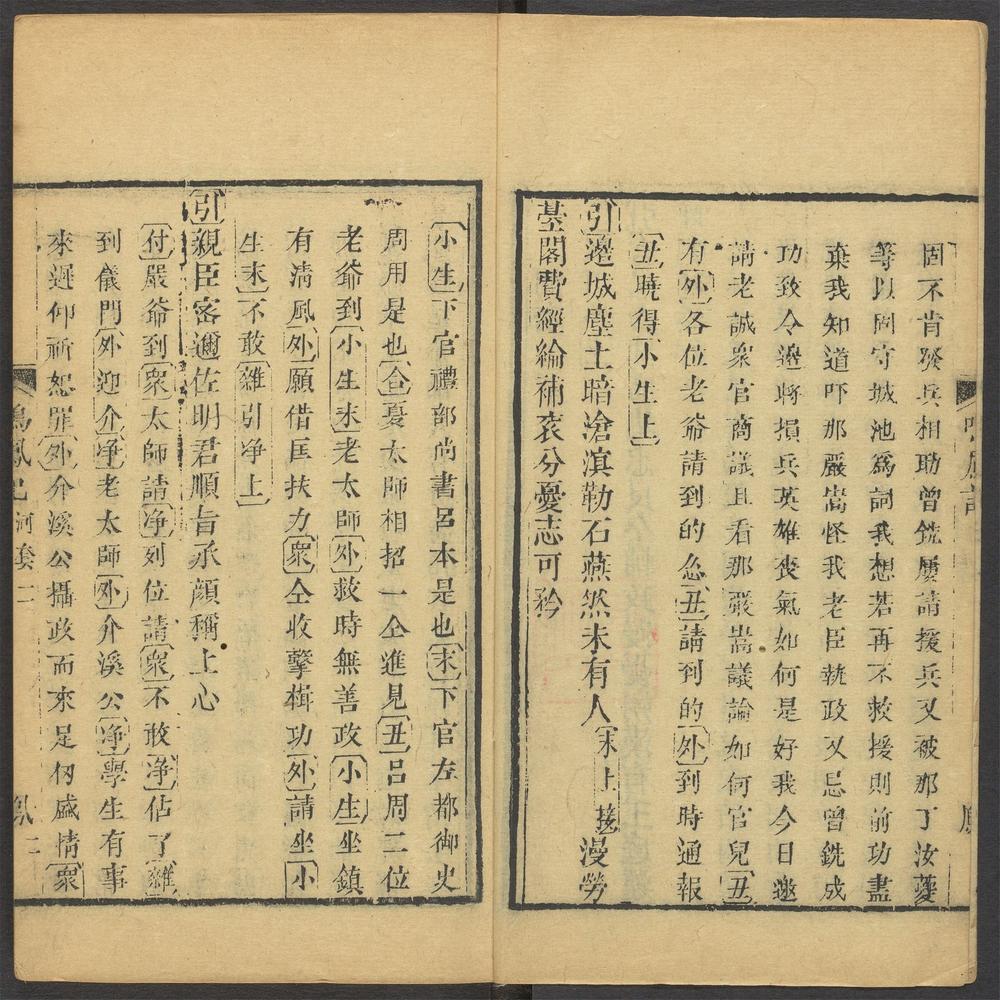 固不肯發兵相助曾銑屢請援兵又被那丁汝夔
等以固守城池爲詞我想若再不救援則前功盡
棄我知道吓那嚴嵩怪我老臣執政又忌曾銑成
功致令邊將損兵英雄喪氣如何是好我今日邀
請老誠衆官商議且看那嚴嵩議論如何官兒丑
有外各位老爺請到的么丑請到的外到時通報
丑曉得小生上
引邊城塵土暗滄滇勒石燕然未有人末上接漫勞
䑓閣費經綸補衮分憂志可矜
小生下官禮部尚書呂本是也末下官左都御史
周用是也合夏太師相招一仝進見丑呂周二位
老爺到小生末老太師外救時無善政小生坐鎮
有清風外願借匡扶力衆仝收擊楫功外請坐小
生末不敢雜引净上
引親臣密邇佐明君順旨承顔稱上心
付嚴爺到衆太師請净列位請衆不敢净佔了雜
到儀門外迎介净老太師外介溪公净學生有事
來遲仰祈恕罪外介溪公攝政而來足仞盛情衆
鳴鳳記 河套 二
鳳 二